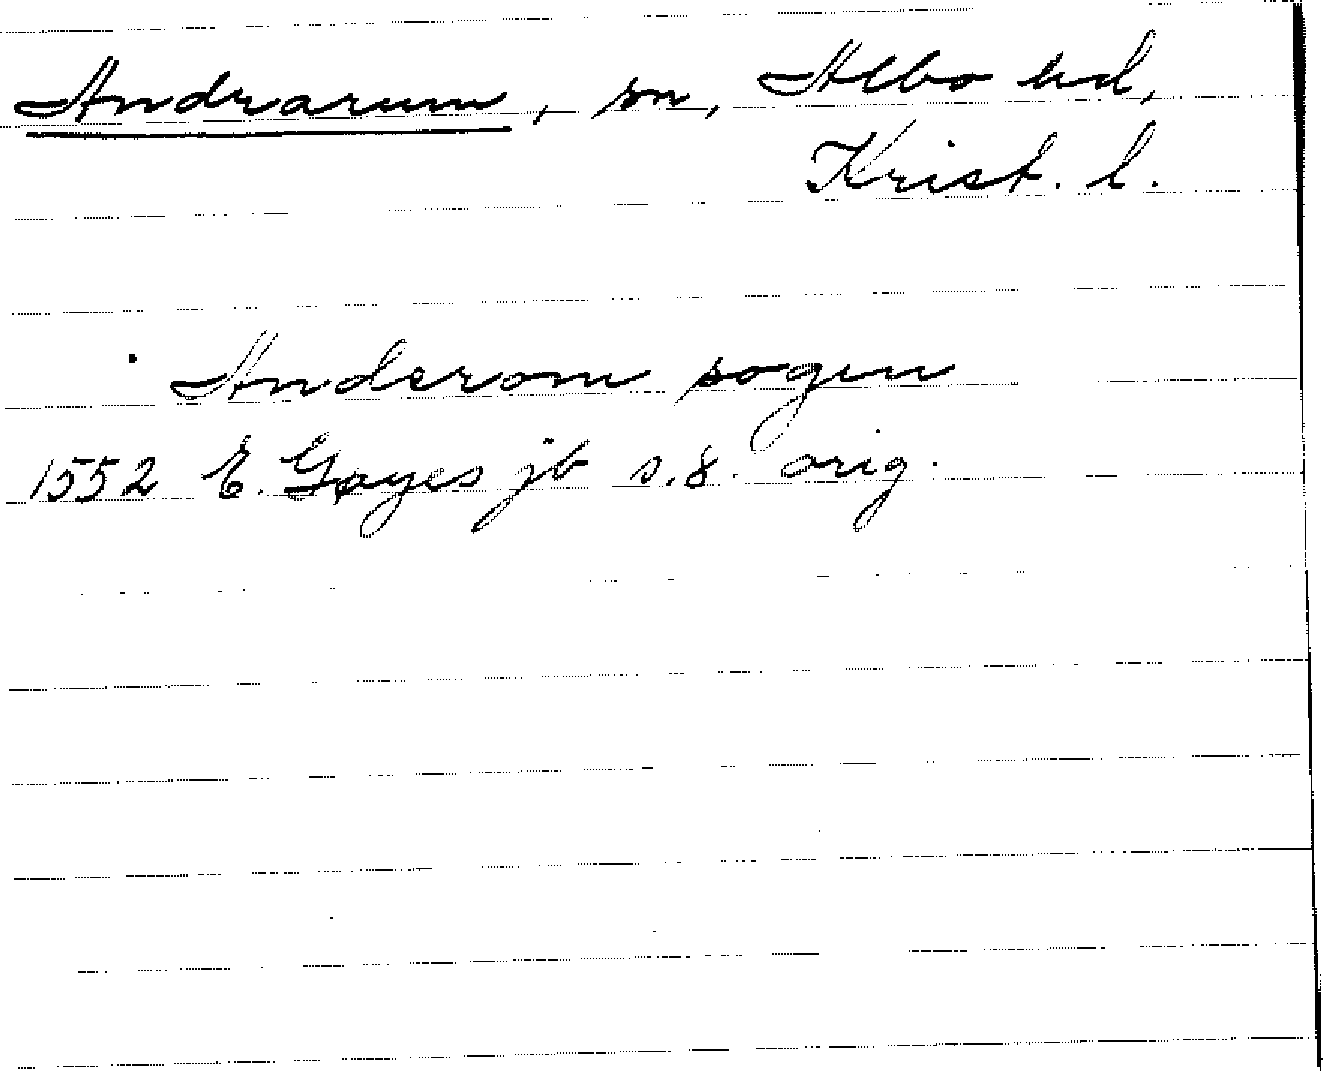 Andrarum, sn, Albo hd,
Krist. l.
Anderom sogen
1552 E. Gøyes jb s. 8. orig.